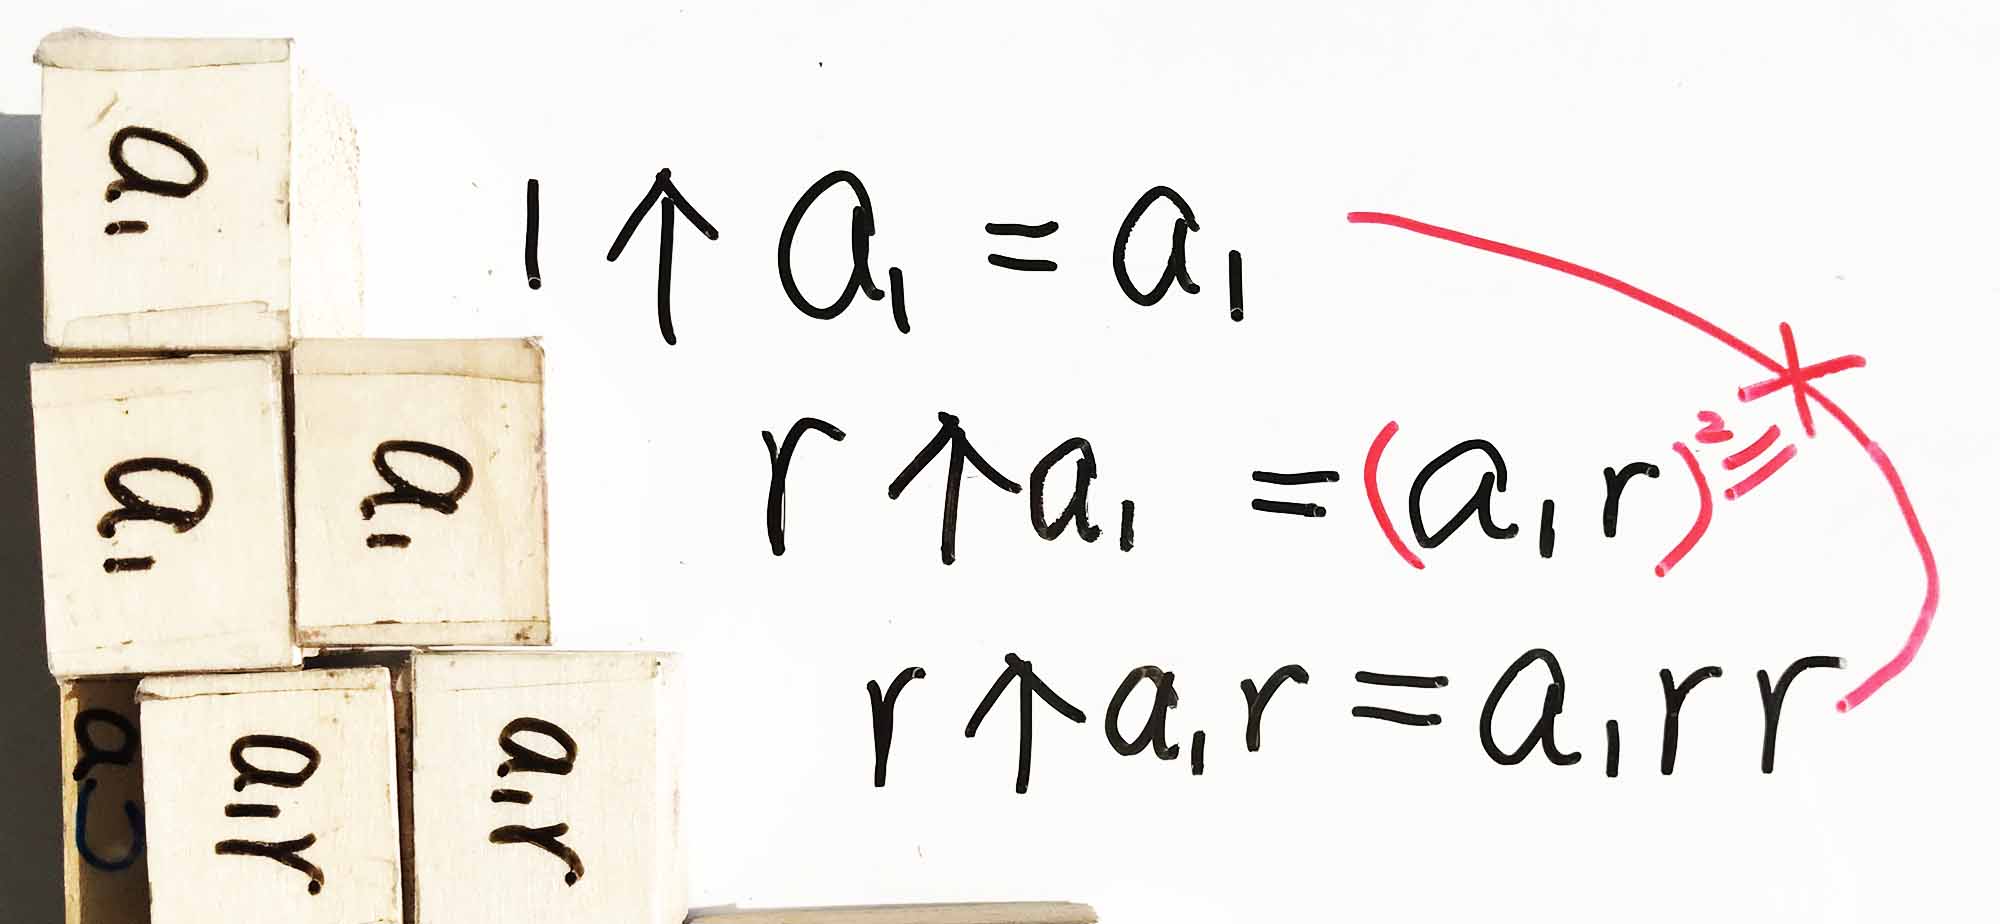 a₁
1 ↑ a₁ = a₁
a₁ a₁
r ↑ a₁ = (a₁r)² =
a₁r a₁r
r ↑ a₁r = a₁rr